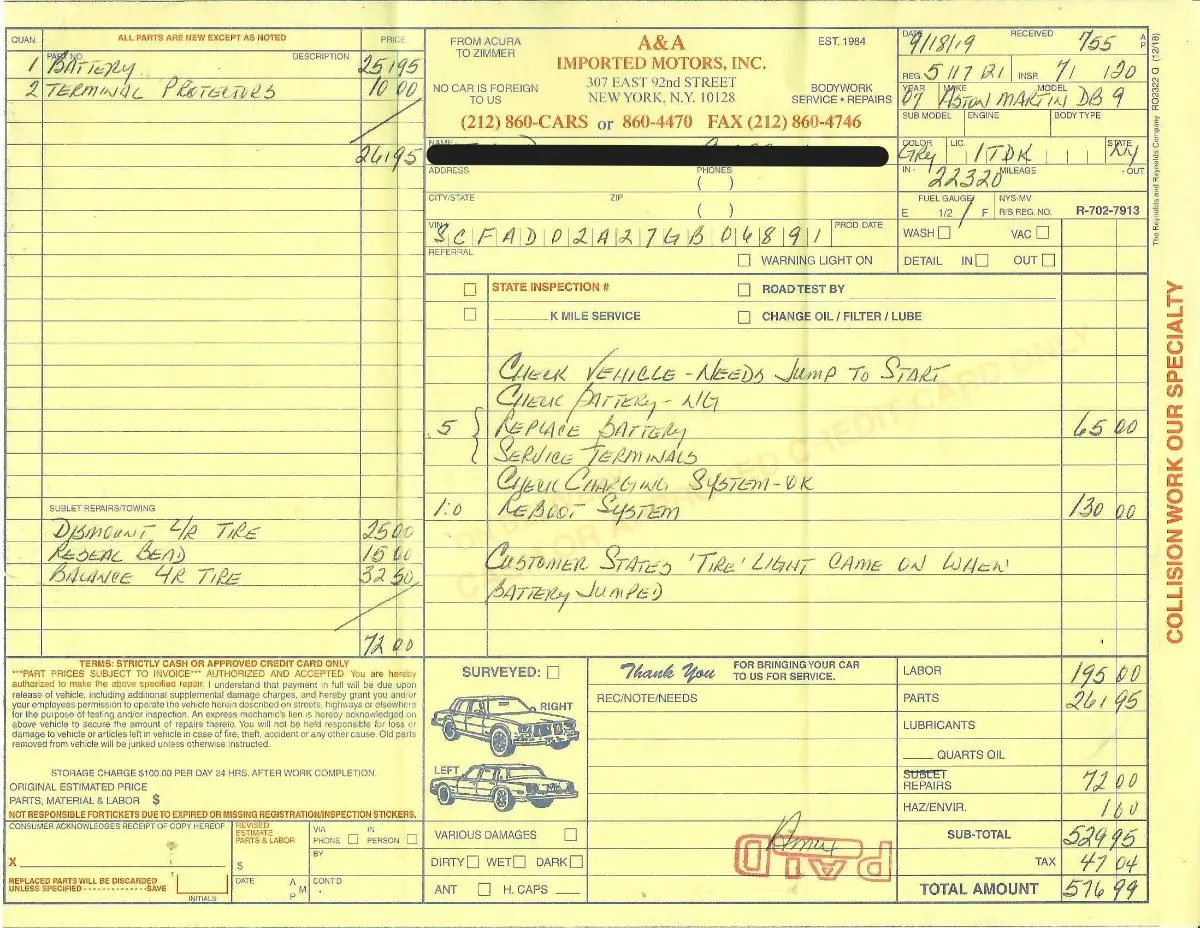 QUAN. ALL PARTS ARE NEW EXCEPT AS NOTED PRICE
PART NO. DESCRIPTION
1 BATTERY 251 95
2 TERMINAL PROTECTORS 10 00
261 95
SUBLET REPAIRS/TOWING
DISMOUNT L/R TIRE 25 00
RESEAL BEAD 15 00
BALANCE L/R TIRE 32 50
72 00
FROM ACURA
TO ZIMMER
NO CAR IS FOREIGN
TO US
A&A
IMPORTED MOTORS, INC.
307 EAST 92nd STREET
NEW YORK, N.Y. 10128
EST. 1984
BODYWORK
SERVICE • REPAIRS
(212) 860-CARS or 860-4470 FAX (212) 860-4746
NAME
ADDRESS PHONES
( )
CITY/STATE ZIP
( )
VIN SCFAD02A27GB06891 PROD DATE
REFERRAL
WARNING LIGHT ON
DATE 9/18/19 RECEIVED 755 A P
REG. 5/17/21 INSP. 7/ /20
YEAR 07 MAKE ASTON MARTIN MODEL DB 9
SUB MODEL ENGINE BODY TYPE
COLOR GRY LIC. 1TDK STATE NY
IN - 22320 MILEAGE - OUT
FUEL GAUGE NYS-MV
E 1/2 F R/S REG. NO. R-702-7913
WASH VAC
DETAIL IN OUT
STATE INSPECTION # ROAD TEST BY
K MILE SERVICE CHANGE OIL / FILTER / LUBE
CHECK VEHICLE - NEEDS JUMP TO START
CHECK BATTERY - N/G
.5 REPLACE BATTERY 65 00
SERVICE TERMINALS
CHECK CHARGING SYSTEM - OK
1.0 REBOOT SYSTEM 130 00
CUSTOMER STATES 'TIRE' LIGHT CAME ON WHEN
BATTERY JUMPED
The Reynolds and Reynolds Company RO2322 Q (12/18)
COLLISION WORK OUR SPECIALTY
TERMS: STRICTLY CASH OR APPROVED CREDIT CARD ONLY
***PART PRICES SUBJECT TO INVOICE*** AUTHORIZED AND ACCEPTED You are hereby
authorized to make the above specified repair. I understand that payment in full will be due upon
release of vehicle, including additional supplemental damage charges, and hereby grant you and/or
your employees permission to operate the vehicle herein described on streets, highways or elsewhere
for the purpose of testing and/or inspection. An express mechanic's lien is hereby acknowledged on
above vehicle to secure the amount of repairs thereto. You will not be held responsible for loss or
damage to vehicle or articles left in vehicle in case of fire, theft, accident or any other cause. Old parts
removed from vehicle will be junked unless otherwise instructed.
STORAGE CHARGE $100.00 PER DAY 24 HRS. AFTER WORK COMPLETION.
ORIGINAL ESTIMATED PRICE
PARTS, MATERIAL & LABOR $
NOT RESPONSIBLE FOR TICKETS DUE TO EXPIRED OR MISSING REGISTRATION/INSPECTION STICKERS.
CONSUMER ACKNOWLEDGES RECEIPT OF COPY HEREOF
X
REPLACED PARTS WILL BE DISCARDED
UNLESS SPECIFIED - - - - - - - - - - - - - -SAVE
INITIALS
REVISED
ESTIMATE
PARTS & LABOR
$
VIA
PHONE
IN
PERSON
BY
DATE A M P
CONT'D
SURVEYED:
RIGHT
LEFT
VARIOUS DAMAGES
DIRTY WET DARK
ANT H. CAPS
Thank You FOR BRINGING YOUR CAR
TO US FOR SERVICE.
REC/NOTE/NEEDS
PAID
LABOR 195 00
PARTS 261 95
LUBRICANTS
QUARTS OIL
SUBLET
REPAIRS 72 00
HAZ/ENVIR. 1 00
SUB-TOTAL 529 95
TAX 47 04
TOTAL AMOUNT 576 99